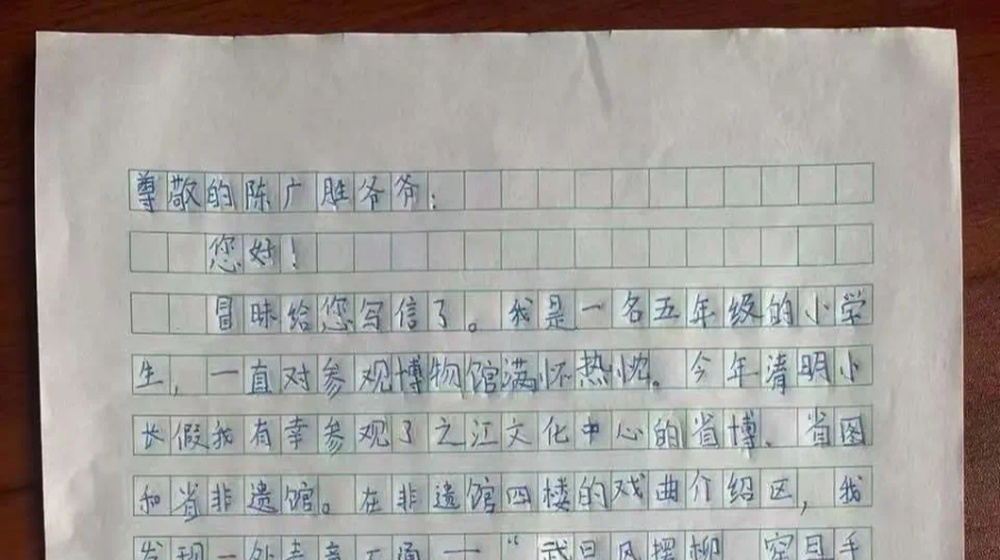 尊敬的陈广胜爷爷：
您好！
冒昧给您写信了。我是一名五年级的小学
生，一直对参观博物馆满怀热忱。今年清明小
长假我有幸参观了之江文化中心的省博、省图
和省非遗馆。在非遗馆四楼的戏曲介绍区，我
发现一处